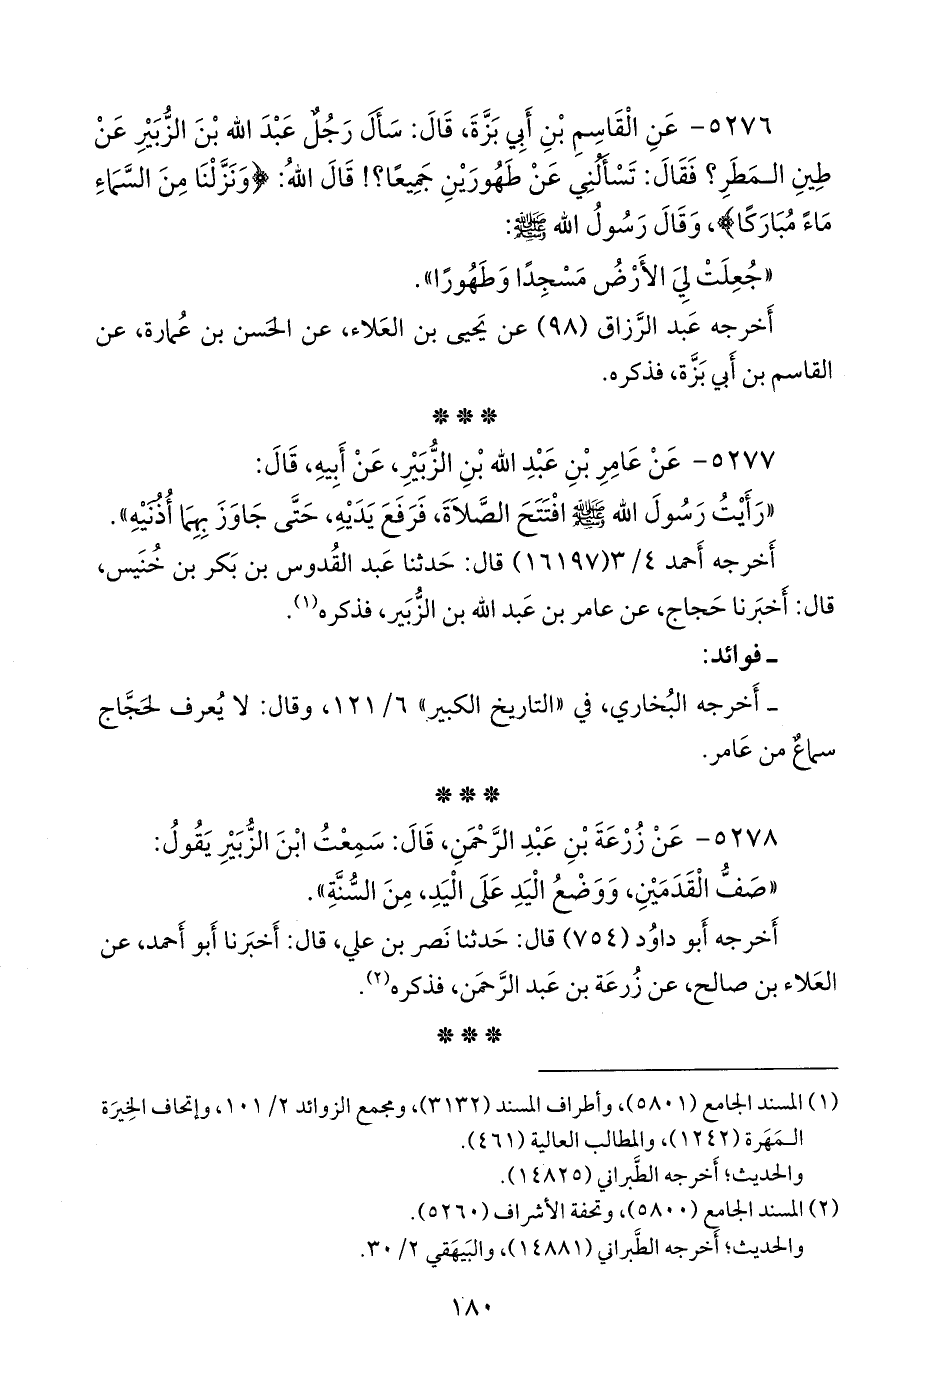 ٥٢٧٦- عَنِ الْقَاسِمِ بْنِ أَبِي بَزَّةَ، قَالَ: سَأَلَ رَجُلٌ عَبْدَ الله بْنَ الزُّبَيْرِ عَنْ
طِينِ الـمَطَرِ؟ فَقَالَ: تَسْأَلُنِي عَنْ طَهُورَيْنِ جَمِيعًا؟! قَالَ اللهُ: ﴿وَنَزَّلْنَا مِنَ السَّمَاءِ
مَاءً مُبَارَكًا﴾، وَقَالَ رَسُولُ الله ﷺ:
«جُعِلَتْ لِيَ الأَرْضُ مَسْجِدًا وَطَهُورًا».
أَخرجه عَبد الرَّزاق (٩٨) عن يَحيى بن العَلاء، عن الحَسن بن عُمارة، عن
القاسم بن أَبي بَزَّة، فذكره.
* * *
٥٢٧٧- عَنْ عَامِرِ بْنِ عَبْدِ الله بْنِ الزُّبَيْرِ، عَنْ أَبِيهِ، قَالَ:
«رَأَيْتُ رَسُولَ الله ﷺ افْتَتَحَ الصَّلاَةَ، فَرَفَعَ يَدَيْهِ، حَتَّى جَاوَزَ بِهِمَا أُذُنَيْهِ».
أَخرجه أَحمد ٤/ ٣(١٦١٩٧) قال: حَدثنا عَبد القُدوس بن بَكر بن خُنَيس،
قال: أَخبَرنا حَجاج، عن عامر بن عَبد الله بن الزُّبَير، فذكره(١).
ـ فوائد:
ـ أَخرجه البُخاري، في «التاريخ الكبير» ٦/ ١٢١، وقال: لا يُعرف لحَجَّاج
سماعٌ من عَامر.
* * *
٥٢٧٨- عَنْ زُرْعَةَ بْنِ عَبْدِ الرَّحْمَنِ، قَالَ: سَمِعْتُ ابْنَ الزُّبَيْرِ يَقُولُ:
«صَفُّ الْقَدَمَيْنِ، وَوَضْعُ الْيَدِ عَلَى الْيَدِ، مِنَ السُّنَّةِ».
أَخرجه أَبو داوُد (٧٥٤) قال: حَدثنا نَصر بن علي، قال: أَخبَرنا أَبو أَحمد، عن
العَلاء بن صالح، عن زُرعَة بن عَبد الرَّحمَن، فذكره(٢).
* * *
(١) المسند الجامع (٥٨٠١)، وأطراف المسند (٣١٣٢)، ومجمع الزوائد ٢/ ١٠١، وإتحاف الخِيرَة
الـمَهَرة (١٢٤٢)، والمطالب العالية (٤٦١).
والحديث؛ أَخرجه الطَّبراني (١٤٨٢٥).
(٢) المسند الجامع (٥٨٠٠)، وتحفة الأشراف (٥٢٦٠).
والحديث؛ أَخرجه الطَّبراني (١٤٨٨١)، والبَيهَقي ٢/ ٣٠.
١٨٠